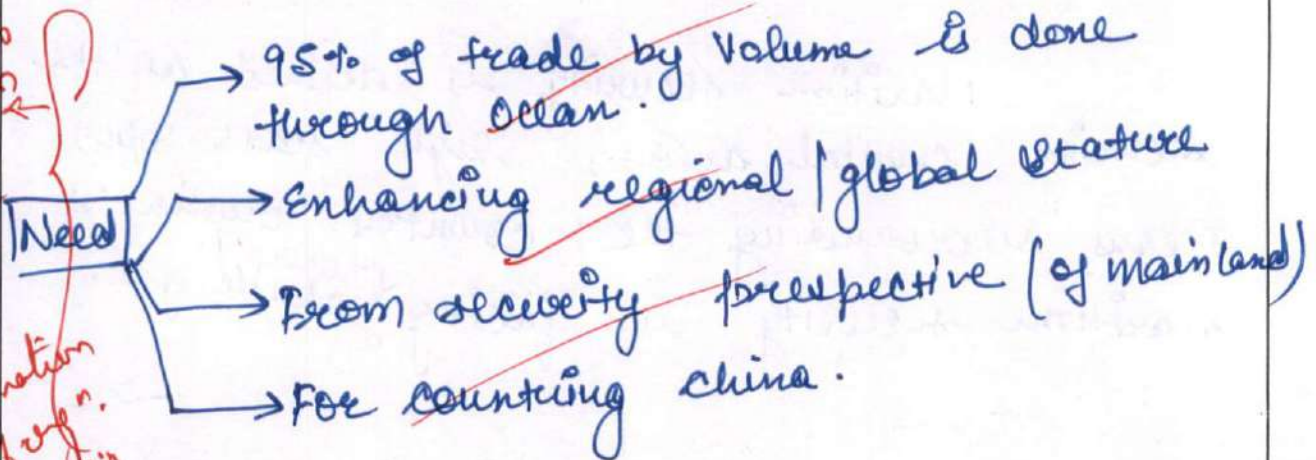 95% of trade by Volume is done
through ocean.
Enhancing regional / global stature
Need
From security prespective (of mainland)
For countring china.